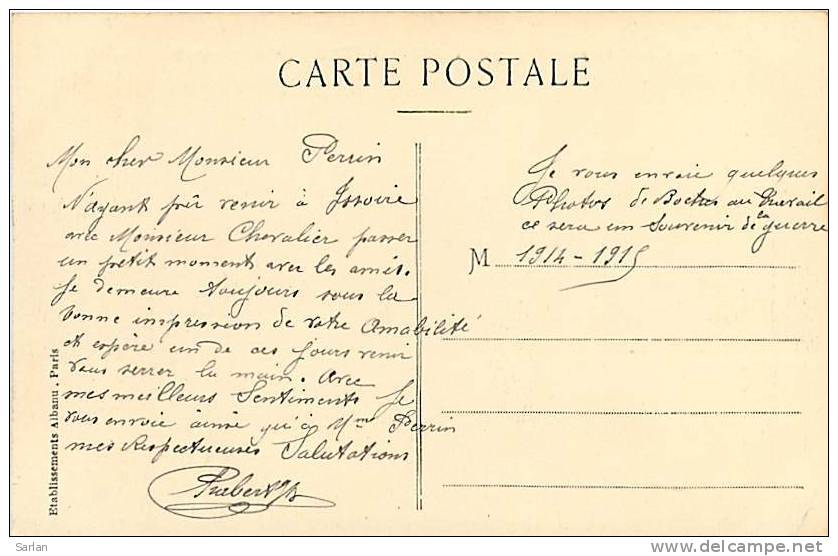 CARTE POSTALE
Mon cher Monsieur Perrin
N'ayant pû venir à Issoire
avec Monsieur Chevalier passer
un petit moment avec les amis.
Je demeure toujours sous la
bonne impression de votre Amabilité
et espère un de ces jours venir
vous serrer la main. Avec
mes meilleurs Sentiments Je
vous envoie ainsi qu'à Mme Perrin
mes Respectueuses Salutations
Je vous envoie quelques
Photos de Boches au travail
ce sera un Souvenir de la guerre
M 1914-1915
Etablissements Albanu. Paris
Sarlan
delcampe.net